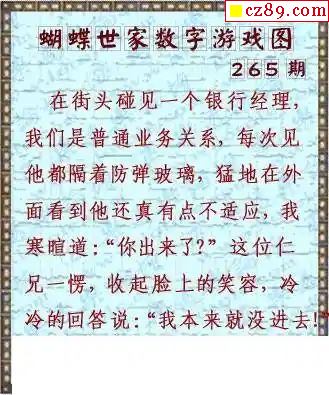 cz89.com
蝴蝶世家数字游戏图
265期
在街头碰见一个银行经理，
我们是普通业务关系，每次见
他都隔着防弹玻璃，猛地在外
面看到他还真有点不适应，我
寒暄道：“你出来了?”这位仁
兄一愣，收起脸上的笑容，冷
冷的回答说：“我本来就没进去!”